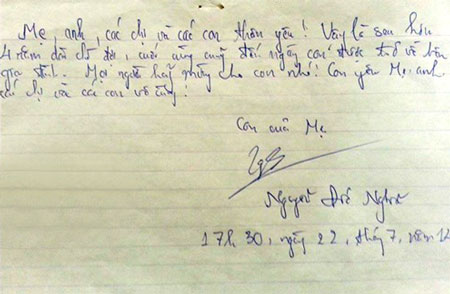 Mẹ, anh, các chị và các con thân yêu! Vậy là sau hơn
4 năm dài chờ đợi, cuối cùng cũng đến ngày con được trở về bên
gia đình. Mọi người hãy mừng cho con nhé! Con yêu Mẹ, anh
các chị và các con vô cùng!
Con của Mẹ
Nguyễn Đức Nghĩa
17h 30, ngày 22, tháng 7, năm